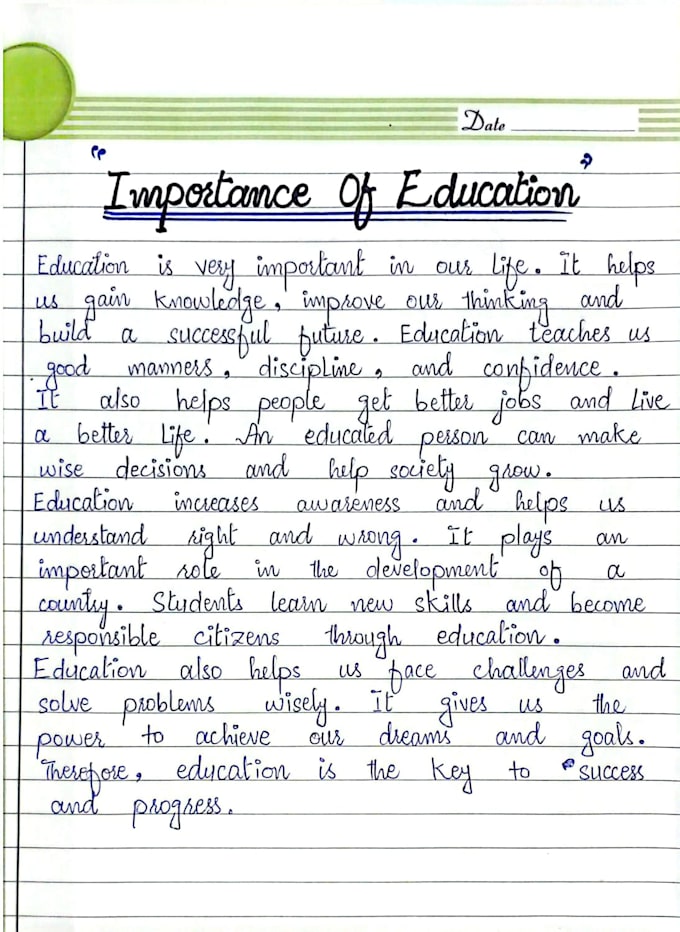 Date
"Importance Of Education"
Education is very important in our life. It helps
us gain knowledge, improve our thinking and
build a successful future. Education teaches us
good manners, discipline, and confidence.
It also helps people get better jobs and live
a better life. An educated person can make
wise decisions and help society grow.
Education increases awareness and helps us
understand right and wrong. It plays an
important role in the development of a
country. Students learn new skills and become
responsible citizens through education.
Education also helps us face challenges and
solve problems wisely. It gives us the
power to achieve our dreams and goals.
Therefore, education is the key to success
and progress.